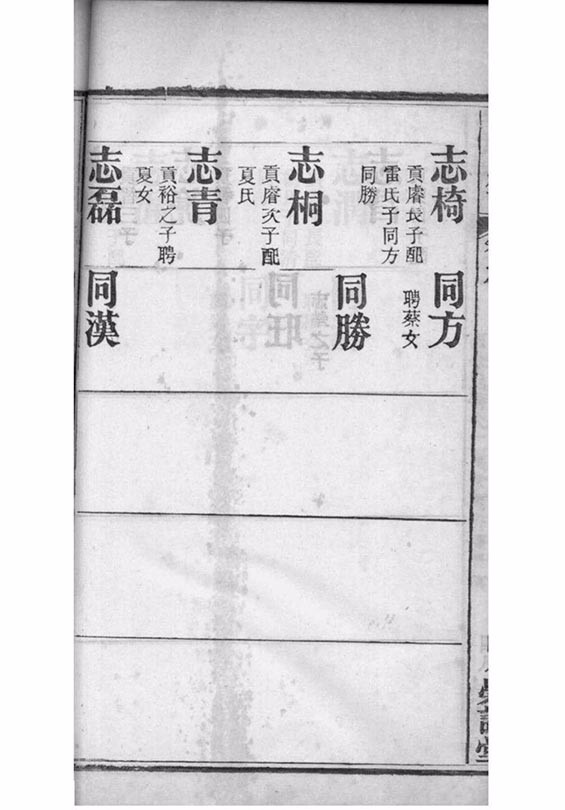 志椅
貢睿長子配
雷氏子同方
同勝
志桐
貢睿次子配
夏氏
志青
貢裕之子聘
夏女
志磊
同方
聘蔡女
同勝
同漢